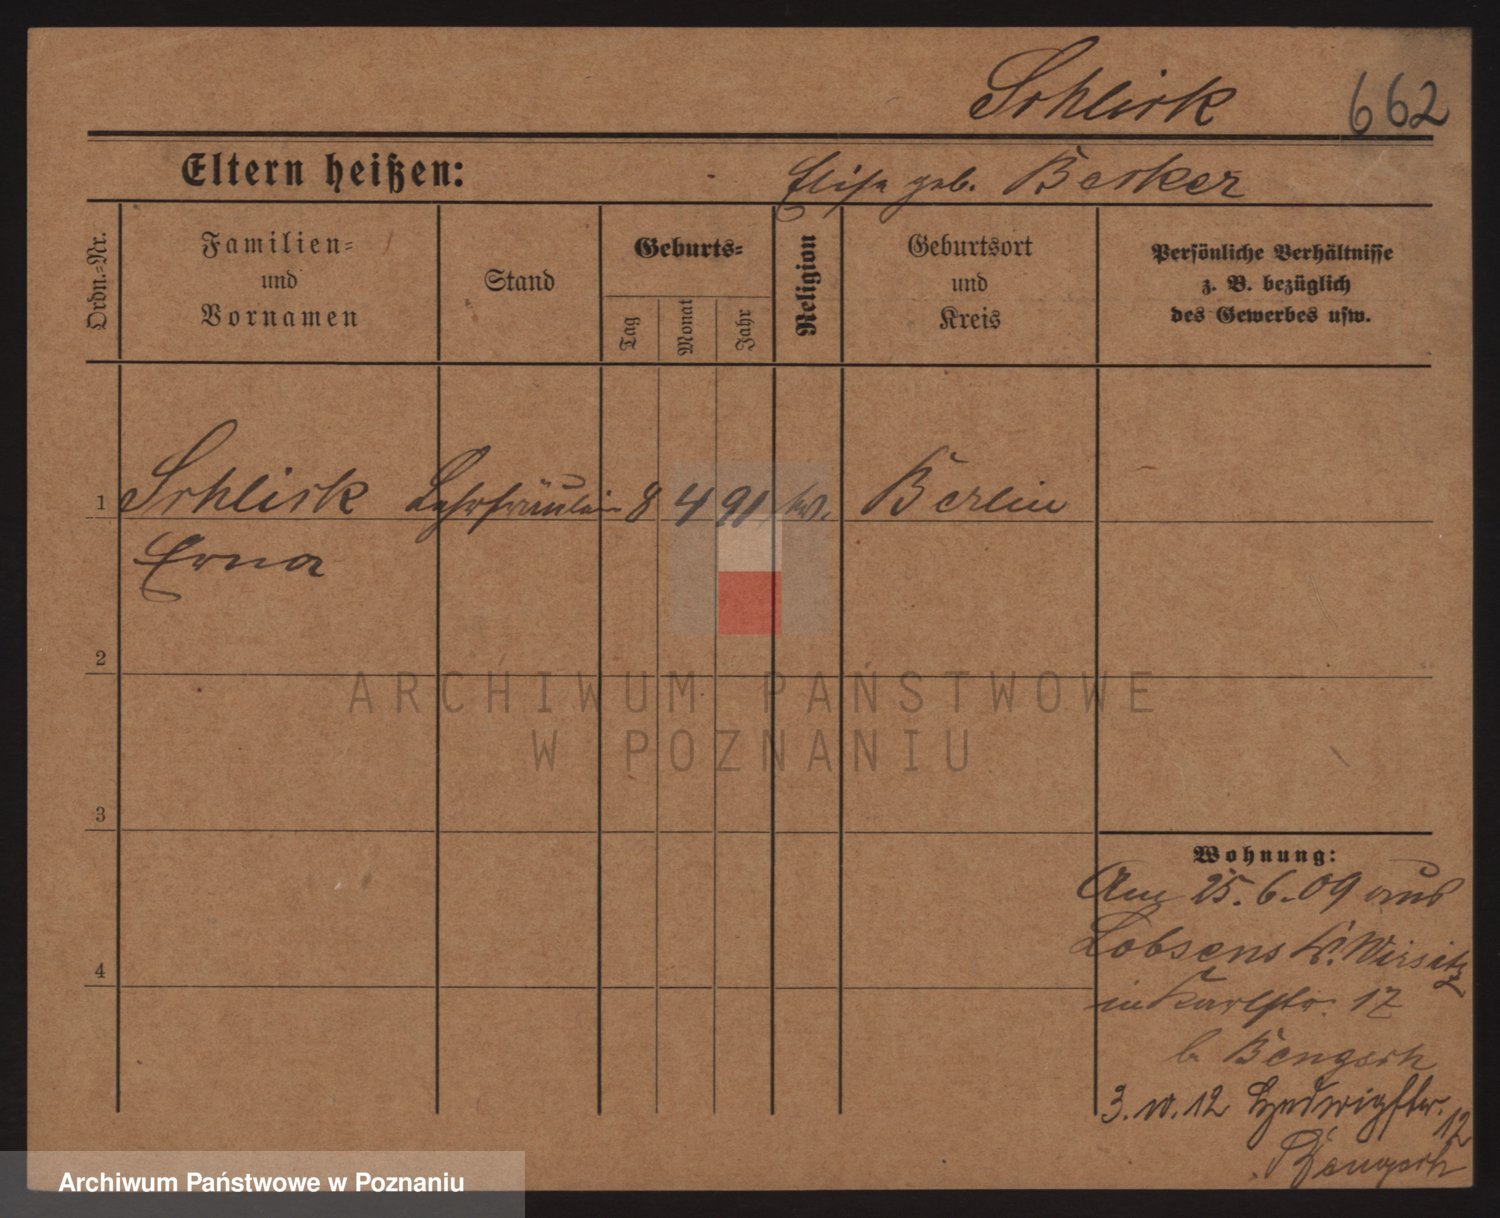 Schlick 662
Eltern heißen:
Elise geb. Becker
Ordn.-Nr.
Familien-
und
Vornamen
Stand
Geburts-
Tag
Monat
Jahr
Religion
Geburtsort
und
Kreis
Persönliche Verhältnisse
z. B. bezüglich
des Gewerbes usw.
1 Schlick Lehrfräulein 8 4 91 Berlin
Erna
2
3
4
Wohnung:
Am 25.6.09 aus
Lobsens Kr. Wirsitz
in Karlstr. 17
b. Bengsch
3. 12 Hedwigstr. 12
Bengsch
ARCHIWUM PAŃSTWOWE
W POZNANIU
Archiwum Państwowe w Poznaniu